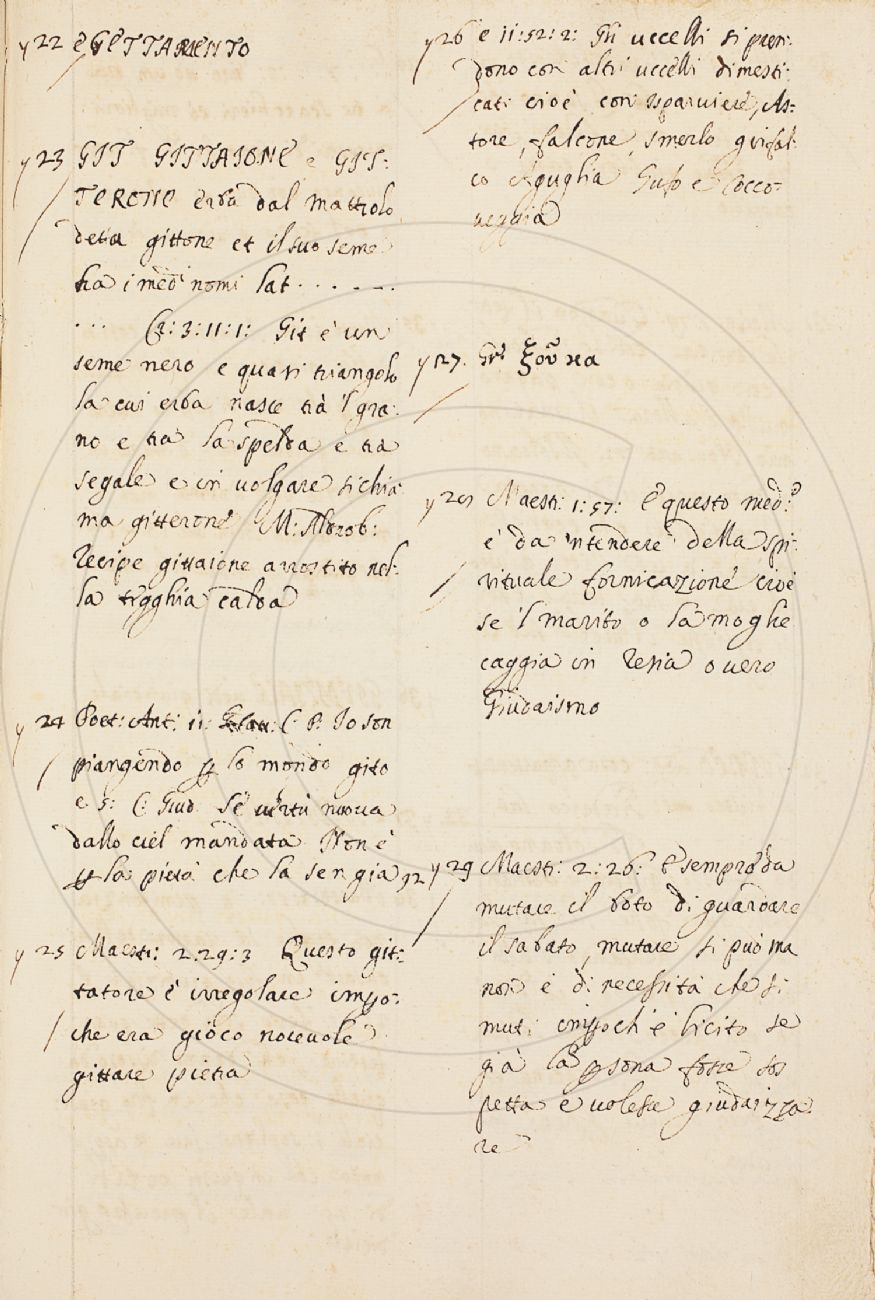 y 22 e GETTAMENTO
y 23 GIT GITTAIONE e GIT-
TERONE erba dal Mattiolo
detta gittone et il suo seme
ha i med.i nomi lat. . . . . . .
. . . Cr: 3: 11: 1: Git è un
seme nero e quasi triangolo
la cui erba nasce trà 'l gra-
no e tra la spelda e tra
segale e in volgare si chia-
ma gitterone M: Aldrob:
Recipe gittaione arrostito nel-
la tegghia calda
y 24 Poet: Ant: 11: C: P. Io son
piangendo p lo mondo gito
e 5: C: Guid. Se vertù nuova
dallo ciel mandata Non è
p la pietà che la sen gia
y 25 Maestr: 2: 29: 3 Questo git-
tatore è irregolare impo-
che era gioco nocevole
gittare pietra
y 26 e 11: 52: 2: Gli uccelli si pren-
dono con altri uccelli dimesti-
cati cioè con isparviere, As-
tore, falcone, smerlo girifal-
co Aguglia Gufo e Cocco-
veggia
y 27. Gr.
y Maestr: 1: 57: E questo med.o
è da 'ntendere della spi-
rituale fornicazione cioè
se 'l marito o la moglie
caggia in resia o vero
Giudaismo
92 y 29 Maestr: 2: 26: E sempre da
mutare il boto di guardare
il sabato, mutare si può ma
non è di necessità che si
muti impoch'è licito se
già la psona fosse sos
petta e volesse giudaizza-
re